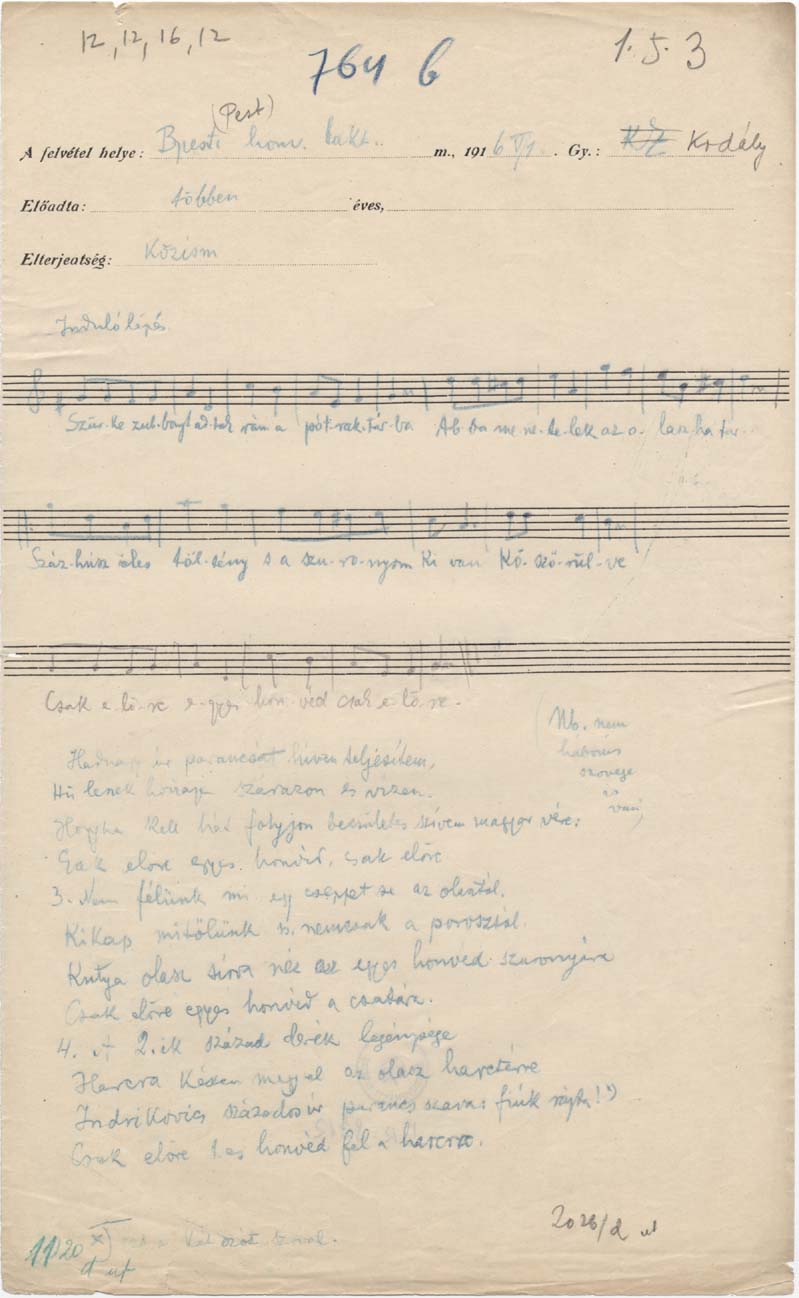 12, 12, 16, 12
764 b
1.5.3
(Pest)
A felvétel helye: Bpesti honv. lakt. m., 1916 V/1. Gy.: KZ Kodály
Előadta: többen éves,
Elterjeatség: Közism
Induló lépés
Szür-ke zub-bonyt ad-tak rám a pót-rak-tár-ba Ab-ba me-ne-te-lek az o-lasz ha-tár-
Száz-húsz éles töl-tény s a szu-ro-nyom ki van Kö-szö-rül-ve
Csak e-lő-re e-gyes hon-véd csak e-lő-re.
(Nb. nem
háborús
szövege
is
van)
Hadnagy úr parancsát híven teljesítem,
Hű leszek hozzája szárazon és vizen.
Hogyha kell hát folyjon becsületes szívem magyar vére:
Csak előre egyes honvéd, csak előre
3. Nem félünk mi egy cseppet se az olasztól,
Kikap mitőlünk s. nemcsak a porosztól.
Kutya olasz sírva néz az egyes honvéd szuronyára
Csak előre egyes honvéd a csatára.
4. A 2.ik század derék legénysége
Harcra készen megy el az olasz harctérre
Indrikovics százados úr parancsszava: fiúk rajta! x)
Csak előre 1.es honvéd fel a harcra.
2026/2
1120
x) a két szót